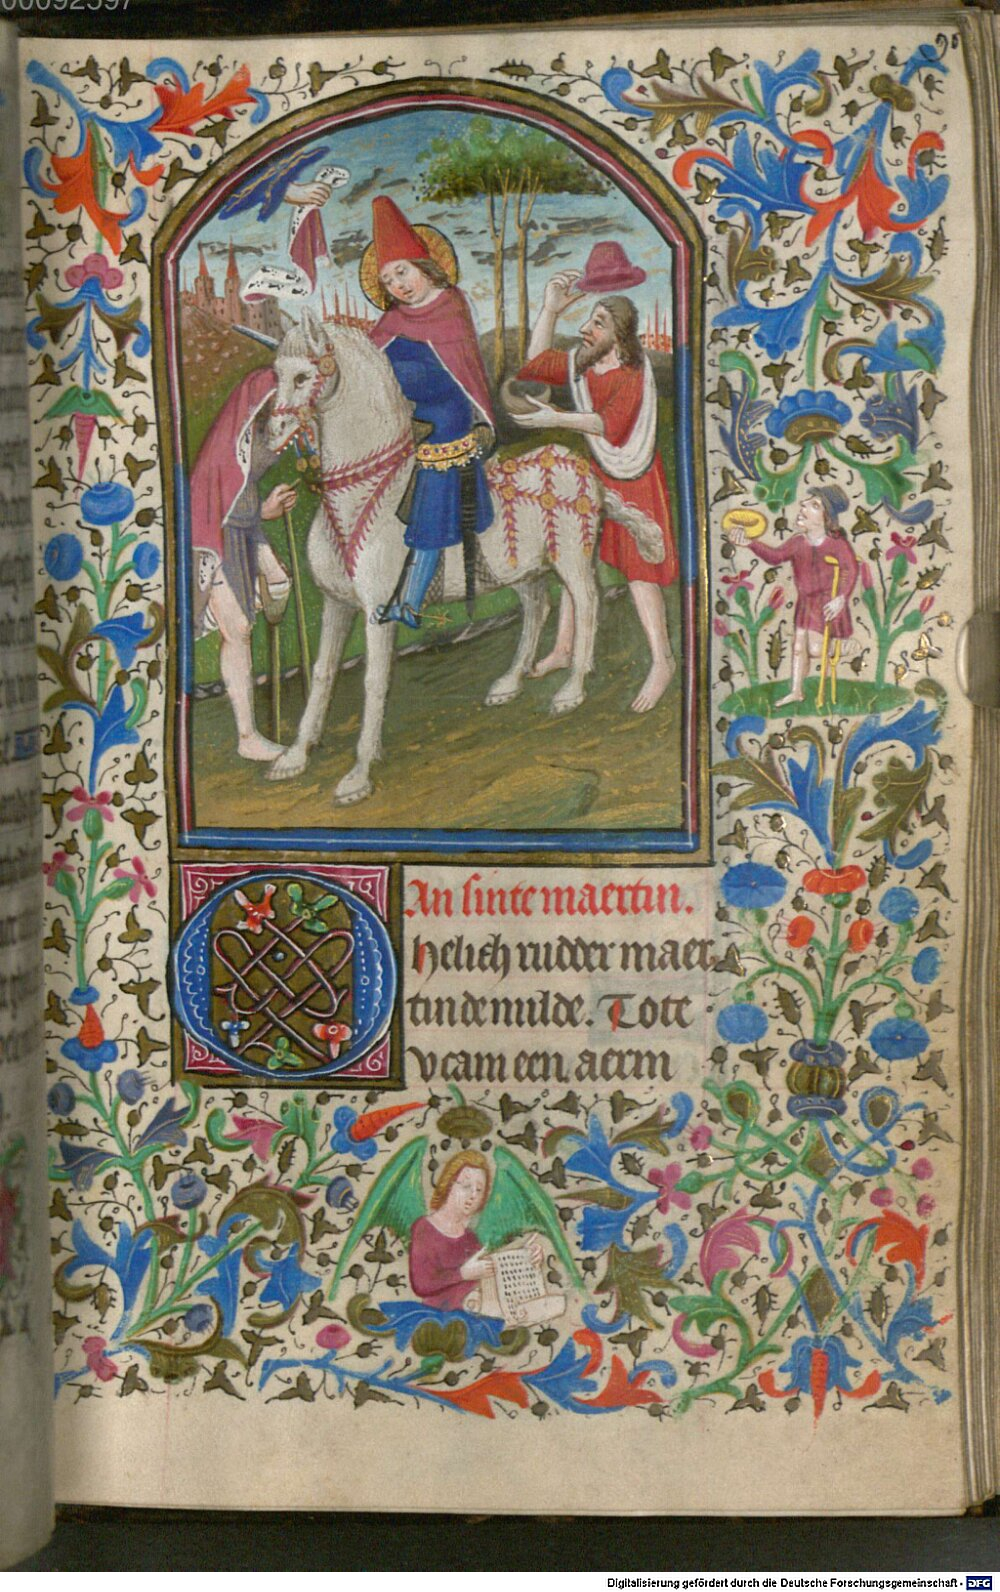 00092597
An sinte maertin.
O helich rudder maer
tin de milde. Tote
v cam een aerm
Digitalisierung gefördert durch die Deutsche Forschungsgemeinschaft - DFG